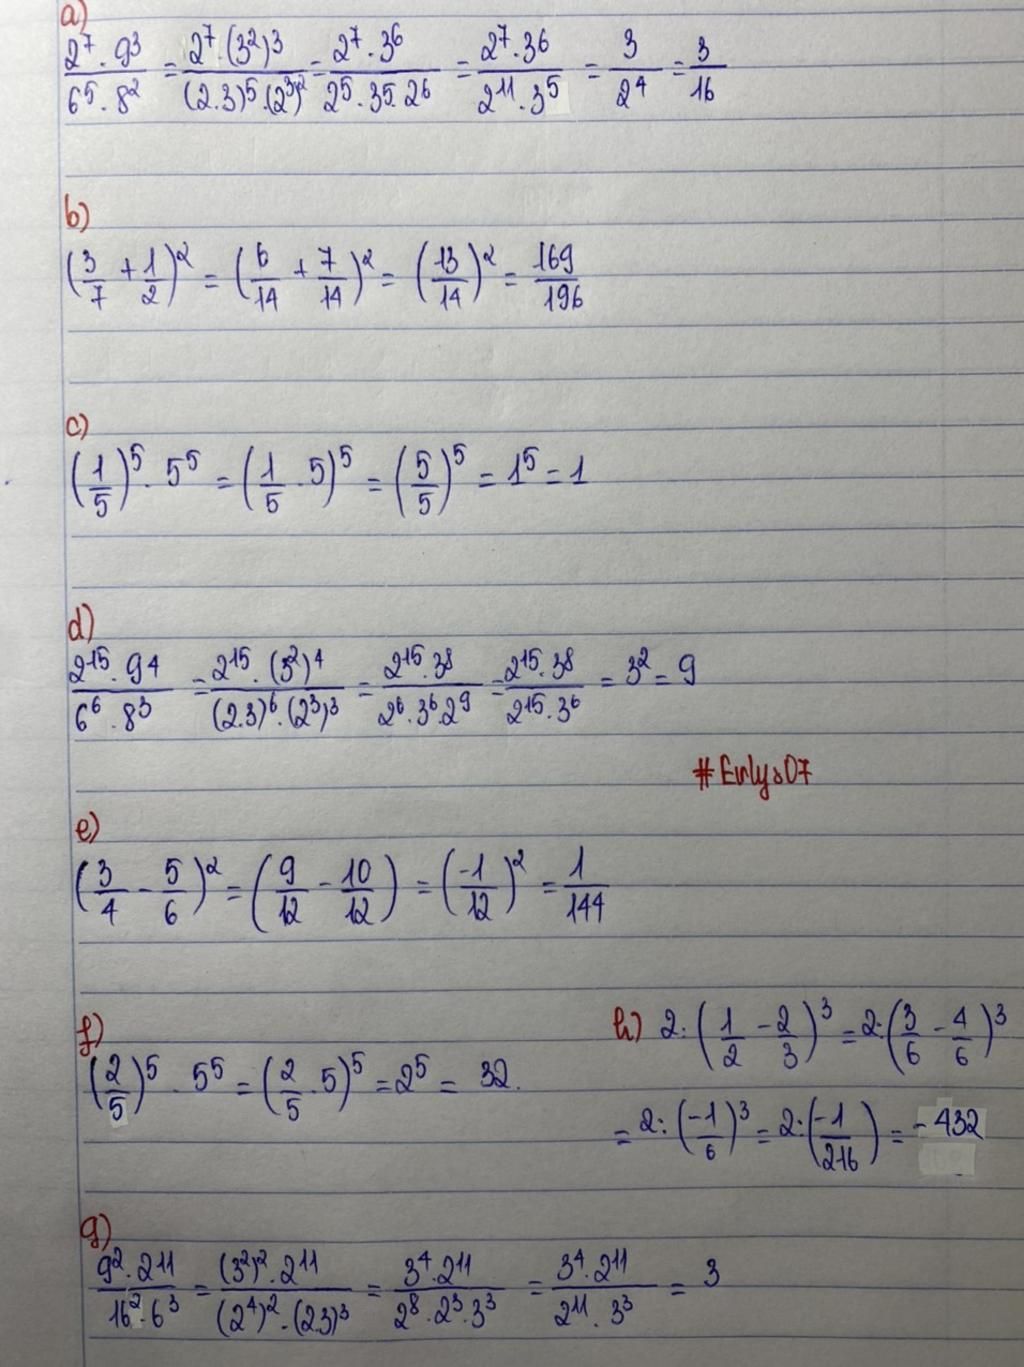 a)
2⁷ . 9³ / 6⁵ . 8² = 2⁷ . (3²)³ / (2.3)⁵ . (2³)² = 2⁷ . 3⁶ / 2⁵ . 3⁵ . 2⁶ = 2⁷ . 3⁶ / 2¹¹ . 3⁵ = 3 / 2⁴ = 3 / 16
b)
(3/7 + 1/2)² = (6/14 + 7/14)² = (13/14)² = 169/196
c)
(1/5)⁵ . 5⁵ = (1/5 . 5)⁵ = (5/5)⁵ = 1⁵ = 1
d)
2¹⁵ . 9⁴ / 6⁶ . 8³ = 2¹⁵ . (3²)⁴ / (2.3)⁶ . (2³)³ = 2¹⁵ . 3⁸ / 2⁶ . 3⁶ . 2⁹ = 2¹⁵ . 3⁸ / 2¹⁵ . 3⁶ = 3² = 9
#Enlys07
e)
(3/4 - 5/6)² = (9/12 - 10/12) = (-1/12)² = 1/144
f)
(2/5)⁵ . 5⁵ = (2/5 . 5)⁵ = 2⁵ = 32.
h) 2 : (1/2 - 2/3)³ = 2 : (3/6 - 4/6)³
= 2 : (-1/6)³ = 2 : (-1/216) = -432
g)
9² . 2¹¹ / 16² . 6³ = (3²)² . 2¹¹ / (2⁴)² . (2.3)³ = 3⁴ . 2¹¹ / 2⁸ . 2³ . 3³ = 3⁴ . 2¹¹ / 2¹¹ . 3³ = 3